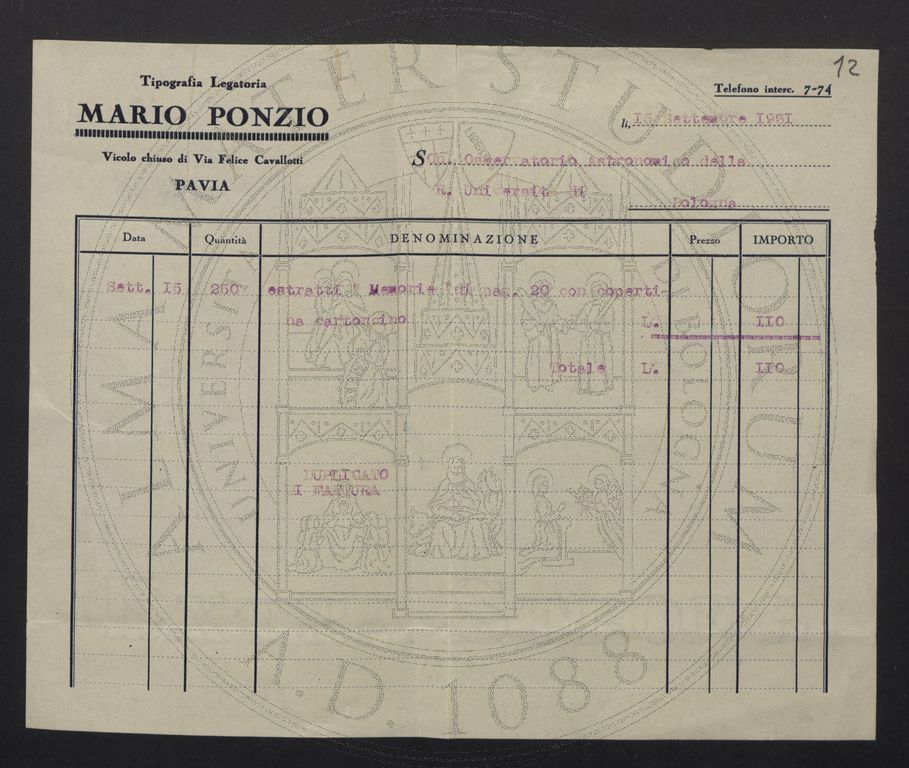 12
Tipografia Legatoria
MARIO PONZIO
Vicolo chiuso di Via Felice Cavallotti
PAVIA
Telefono interc. 7-74
li, 15 Settembre 1931
Osservatorio Astronomico della
R. Università di
Bologna
Data Quantità DENOMINAZIONE Prezzo IMPORTO
Sett. 15 250 estratti " Memorie " di pag. 20 con coperti-
na cartoncino L. 110
Totale L. 110
DUPLICATO
DI FATTURA
ALMA MATER STUDIORUM
UNIVERSITA DI BOLOGNA
A.D. 1088